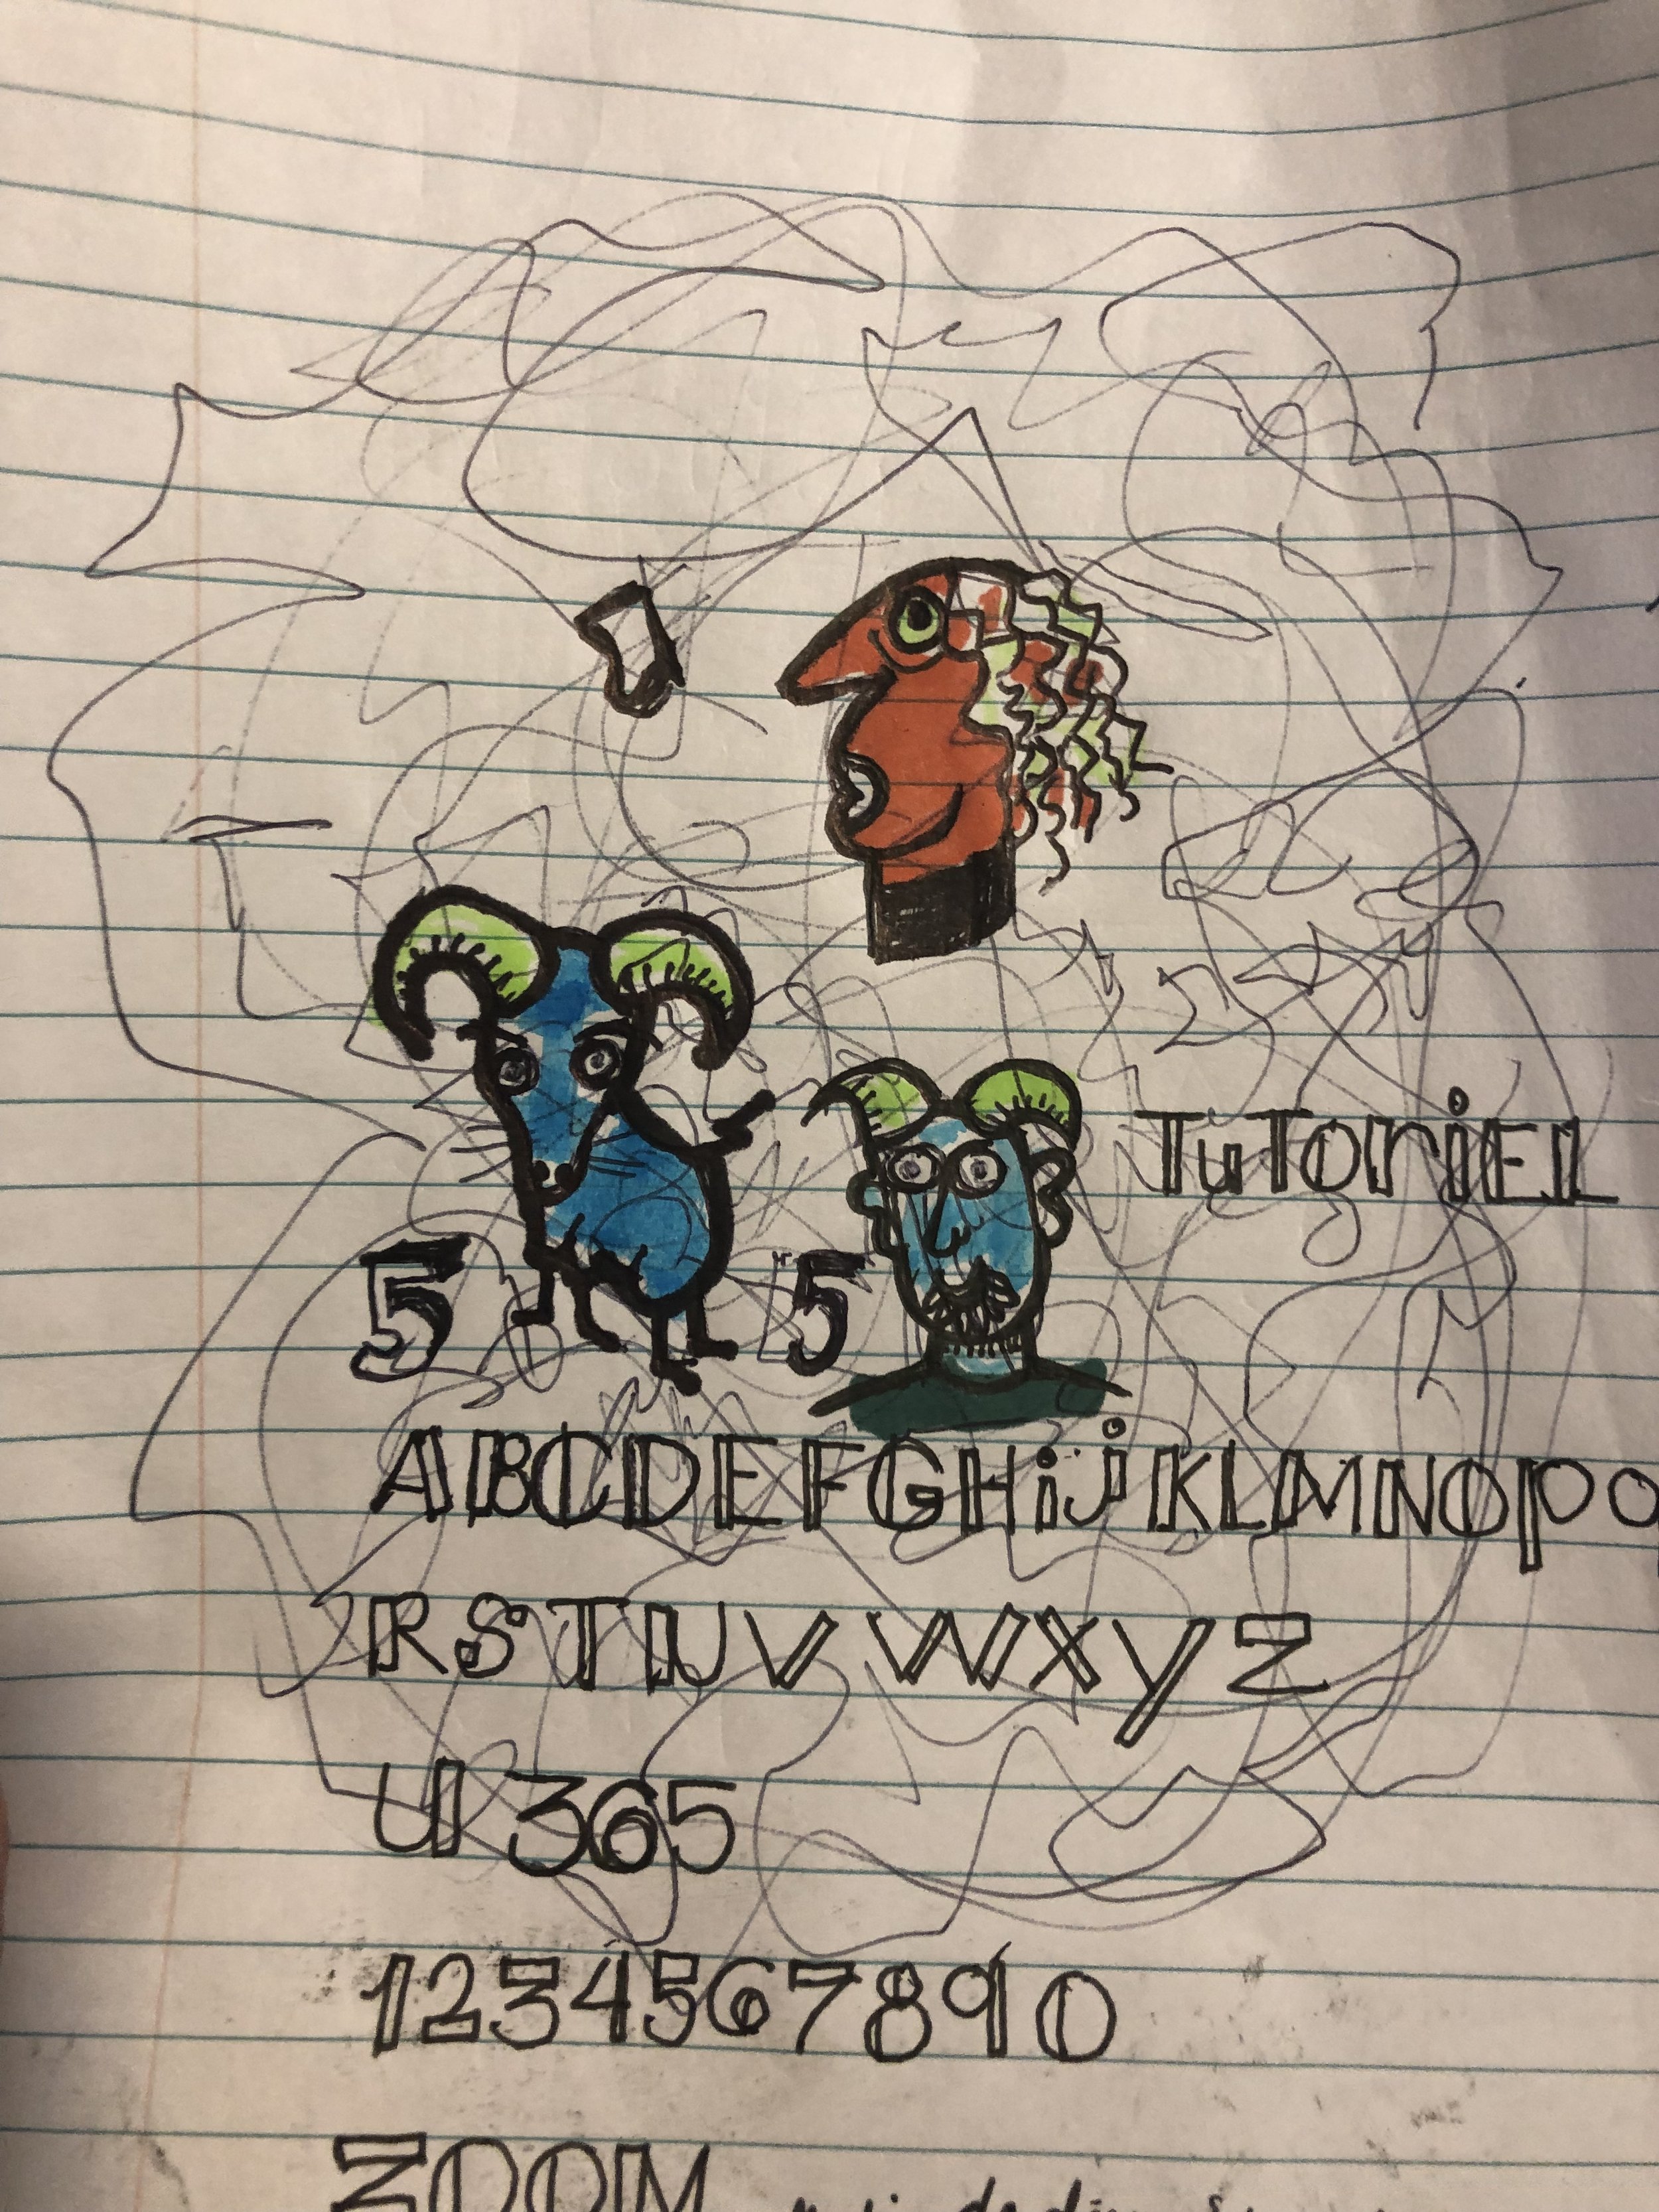 TuTOriEL
5 5
ABCDEFGHijKLMNOPQ
RSTUVWXYZ
UI 365
1234567890
ZOOM